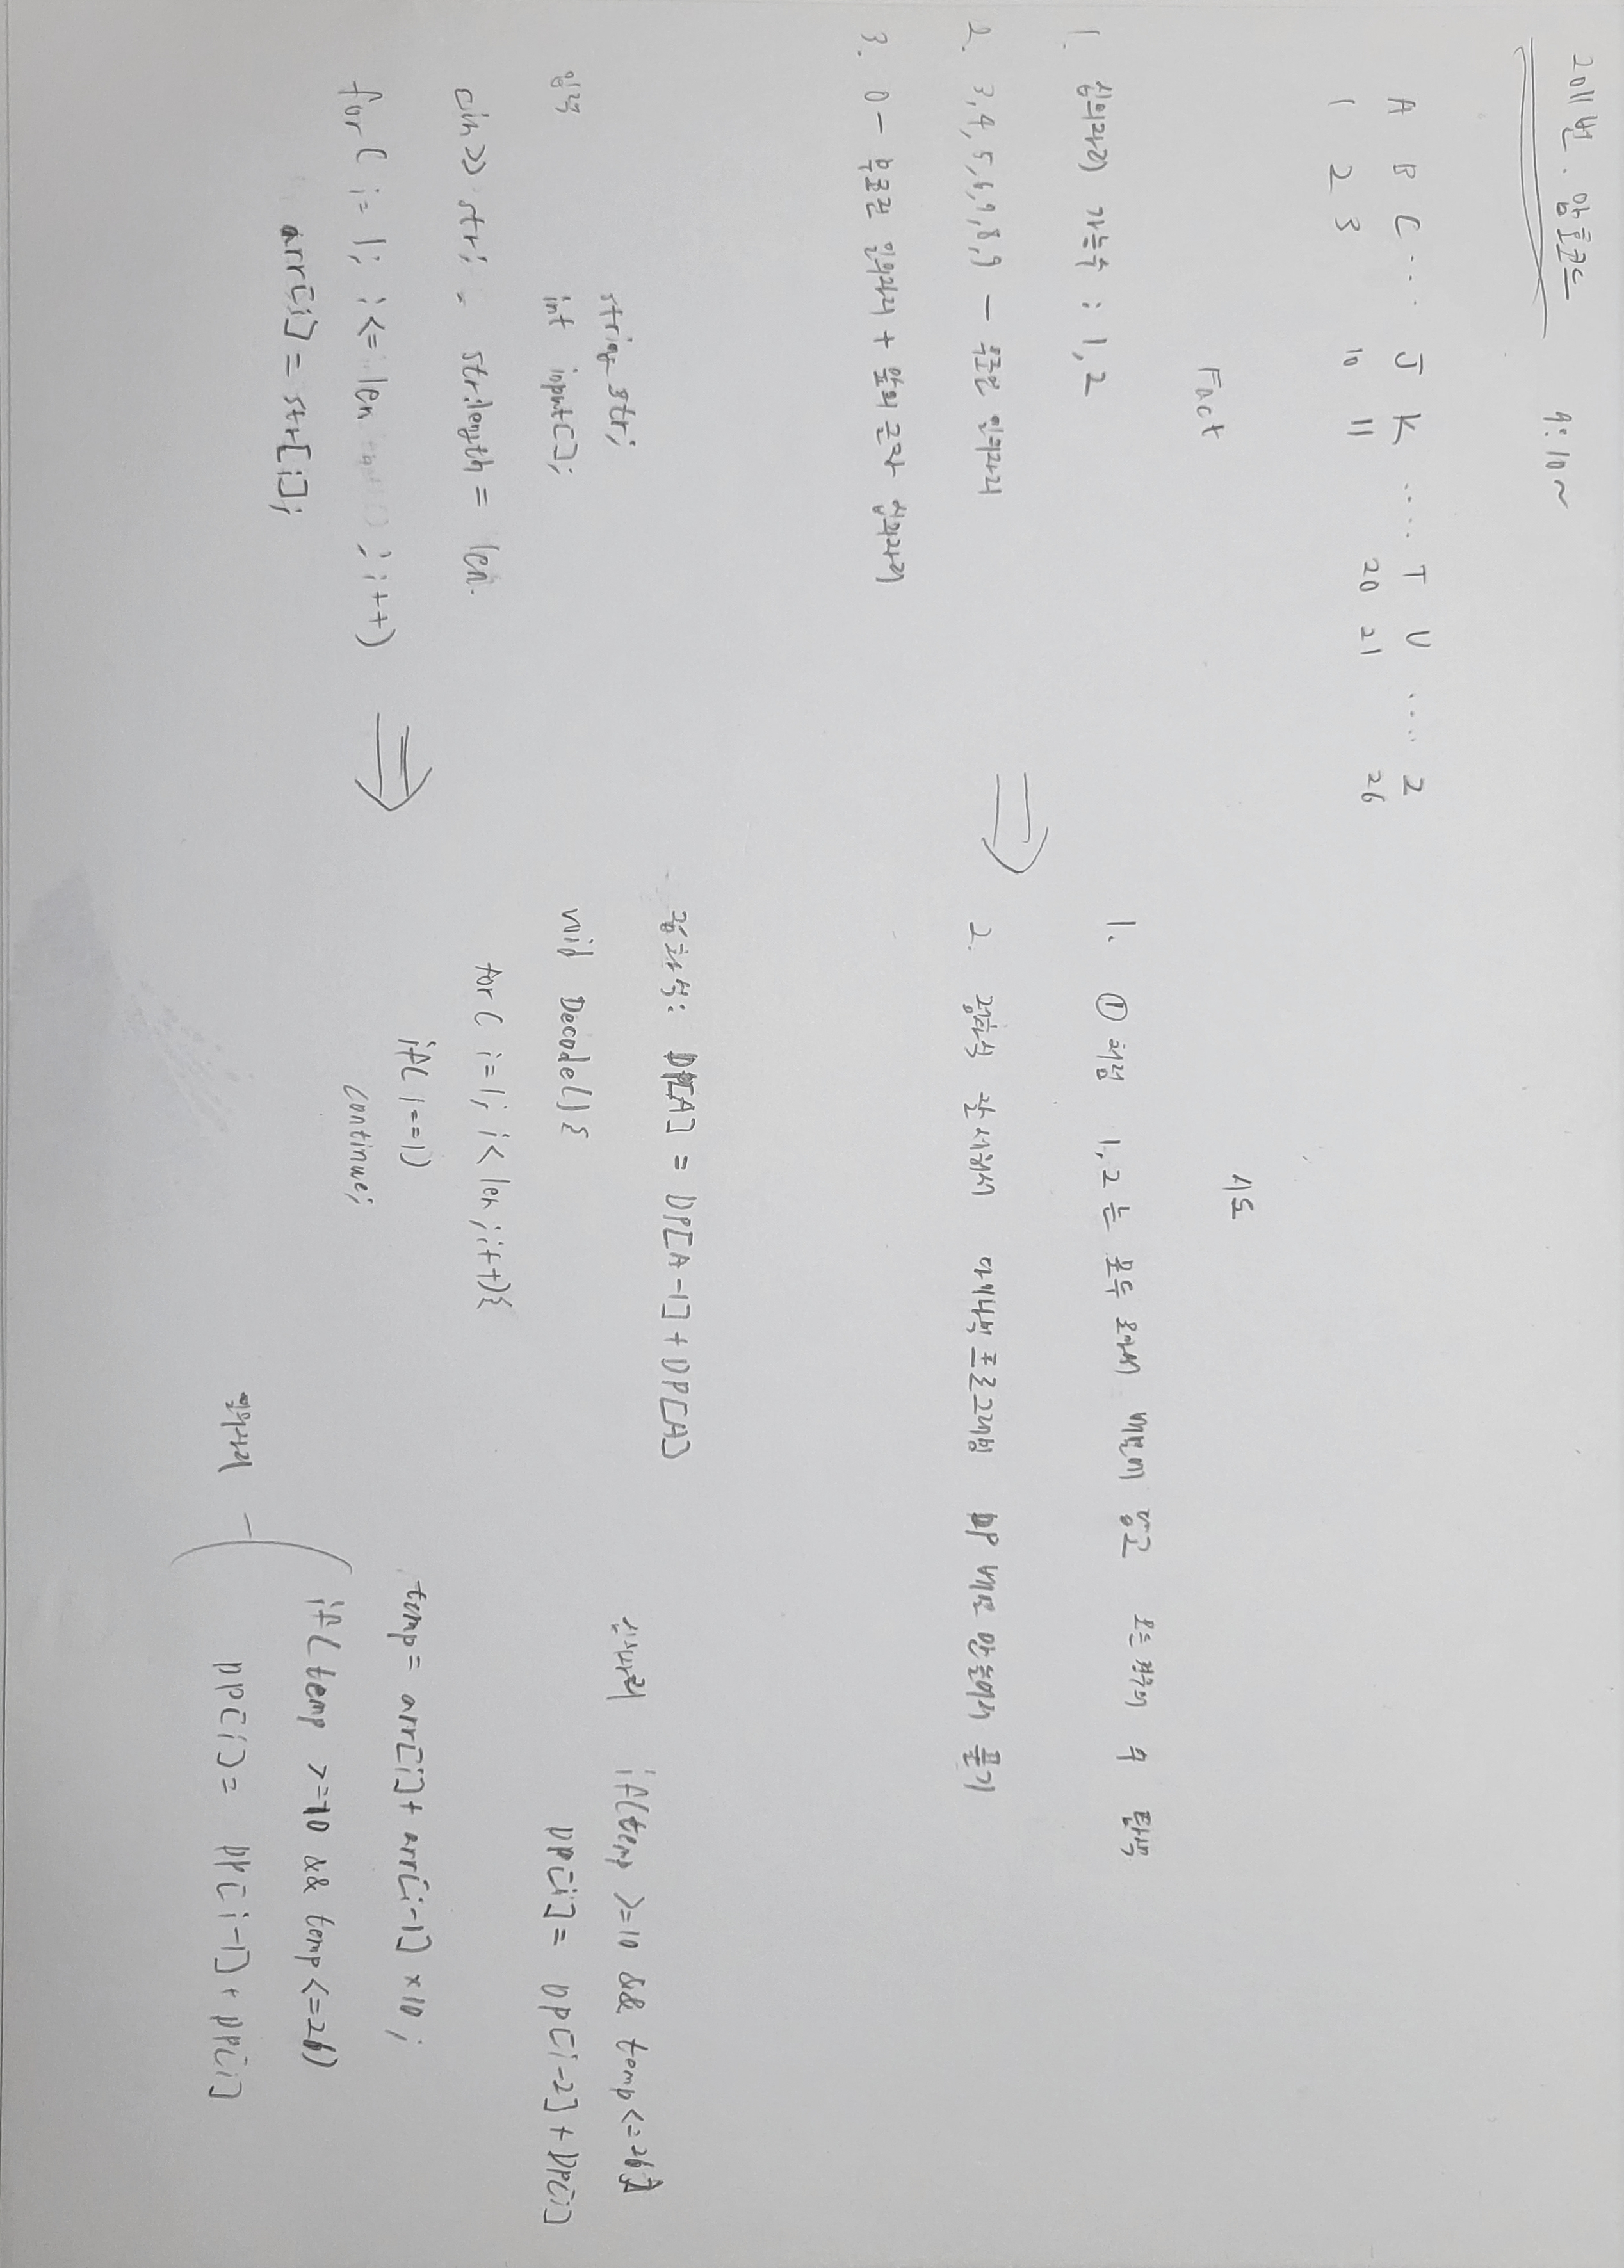 2011번. 암호코드
9:10~
A B C ... J K .... T U .... Z
1 2 3 10 11 20 21 26
Fact
1. 십의자리 가능수 : 1, 2
2. 3,4,5,6,7,8,9 - 무조건 일의자리
3. 0 - 무조건 일의자리 + 앞의 숫자 십의자리
시도
1. ① 처럼 1,2는 모두 로 배열에 담고 모든 경우의 수 탐색
2. 점화식 잘 세워서 다이나믹프로그래밍 DP 배열 만들어서 풀기
입력
string str;
int input[];
cin >> str; = str.length = len.
for( i=1; i<=len ; i++)
arr[i] = str[i];
점화식: DP[A] = DP[A-1] + DP[A]
void Decode(){
for( i=1; i<len; i++){
if( i==1)
continue;
temp = arr[i] + arr[i-1] ×10;
일의자리 - if( temp >=10 && temp<=26)
DP[i] = DP[i-1] + DP[i]
십의자리 if(temp >=10 && temp<=26)
DP[i] = DP[i-2] + DP[i]